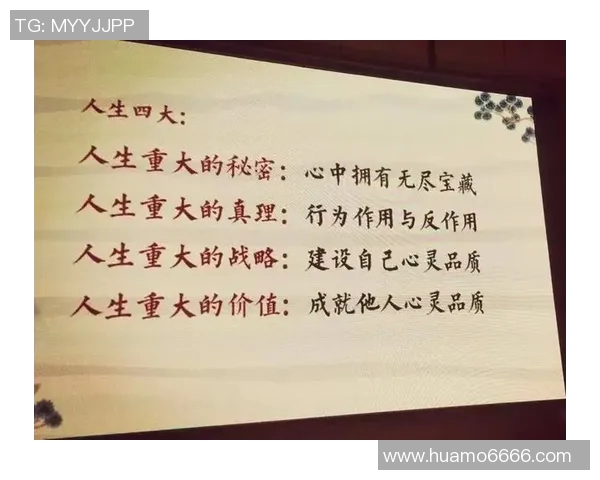 TG: MYYJJPP
人生四大：
人生重大的秘密：心中拥有无尽宝藏
人生重大的真理：行为作用与反作用
人生重大的战略：建设自己心灵品质
人生重大的价值：成就他人心灵品质
www.huamo6666.com